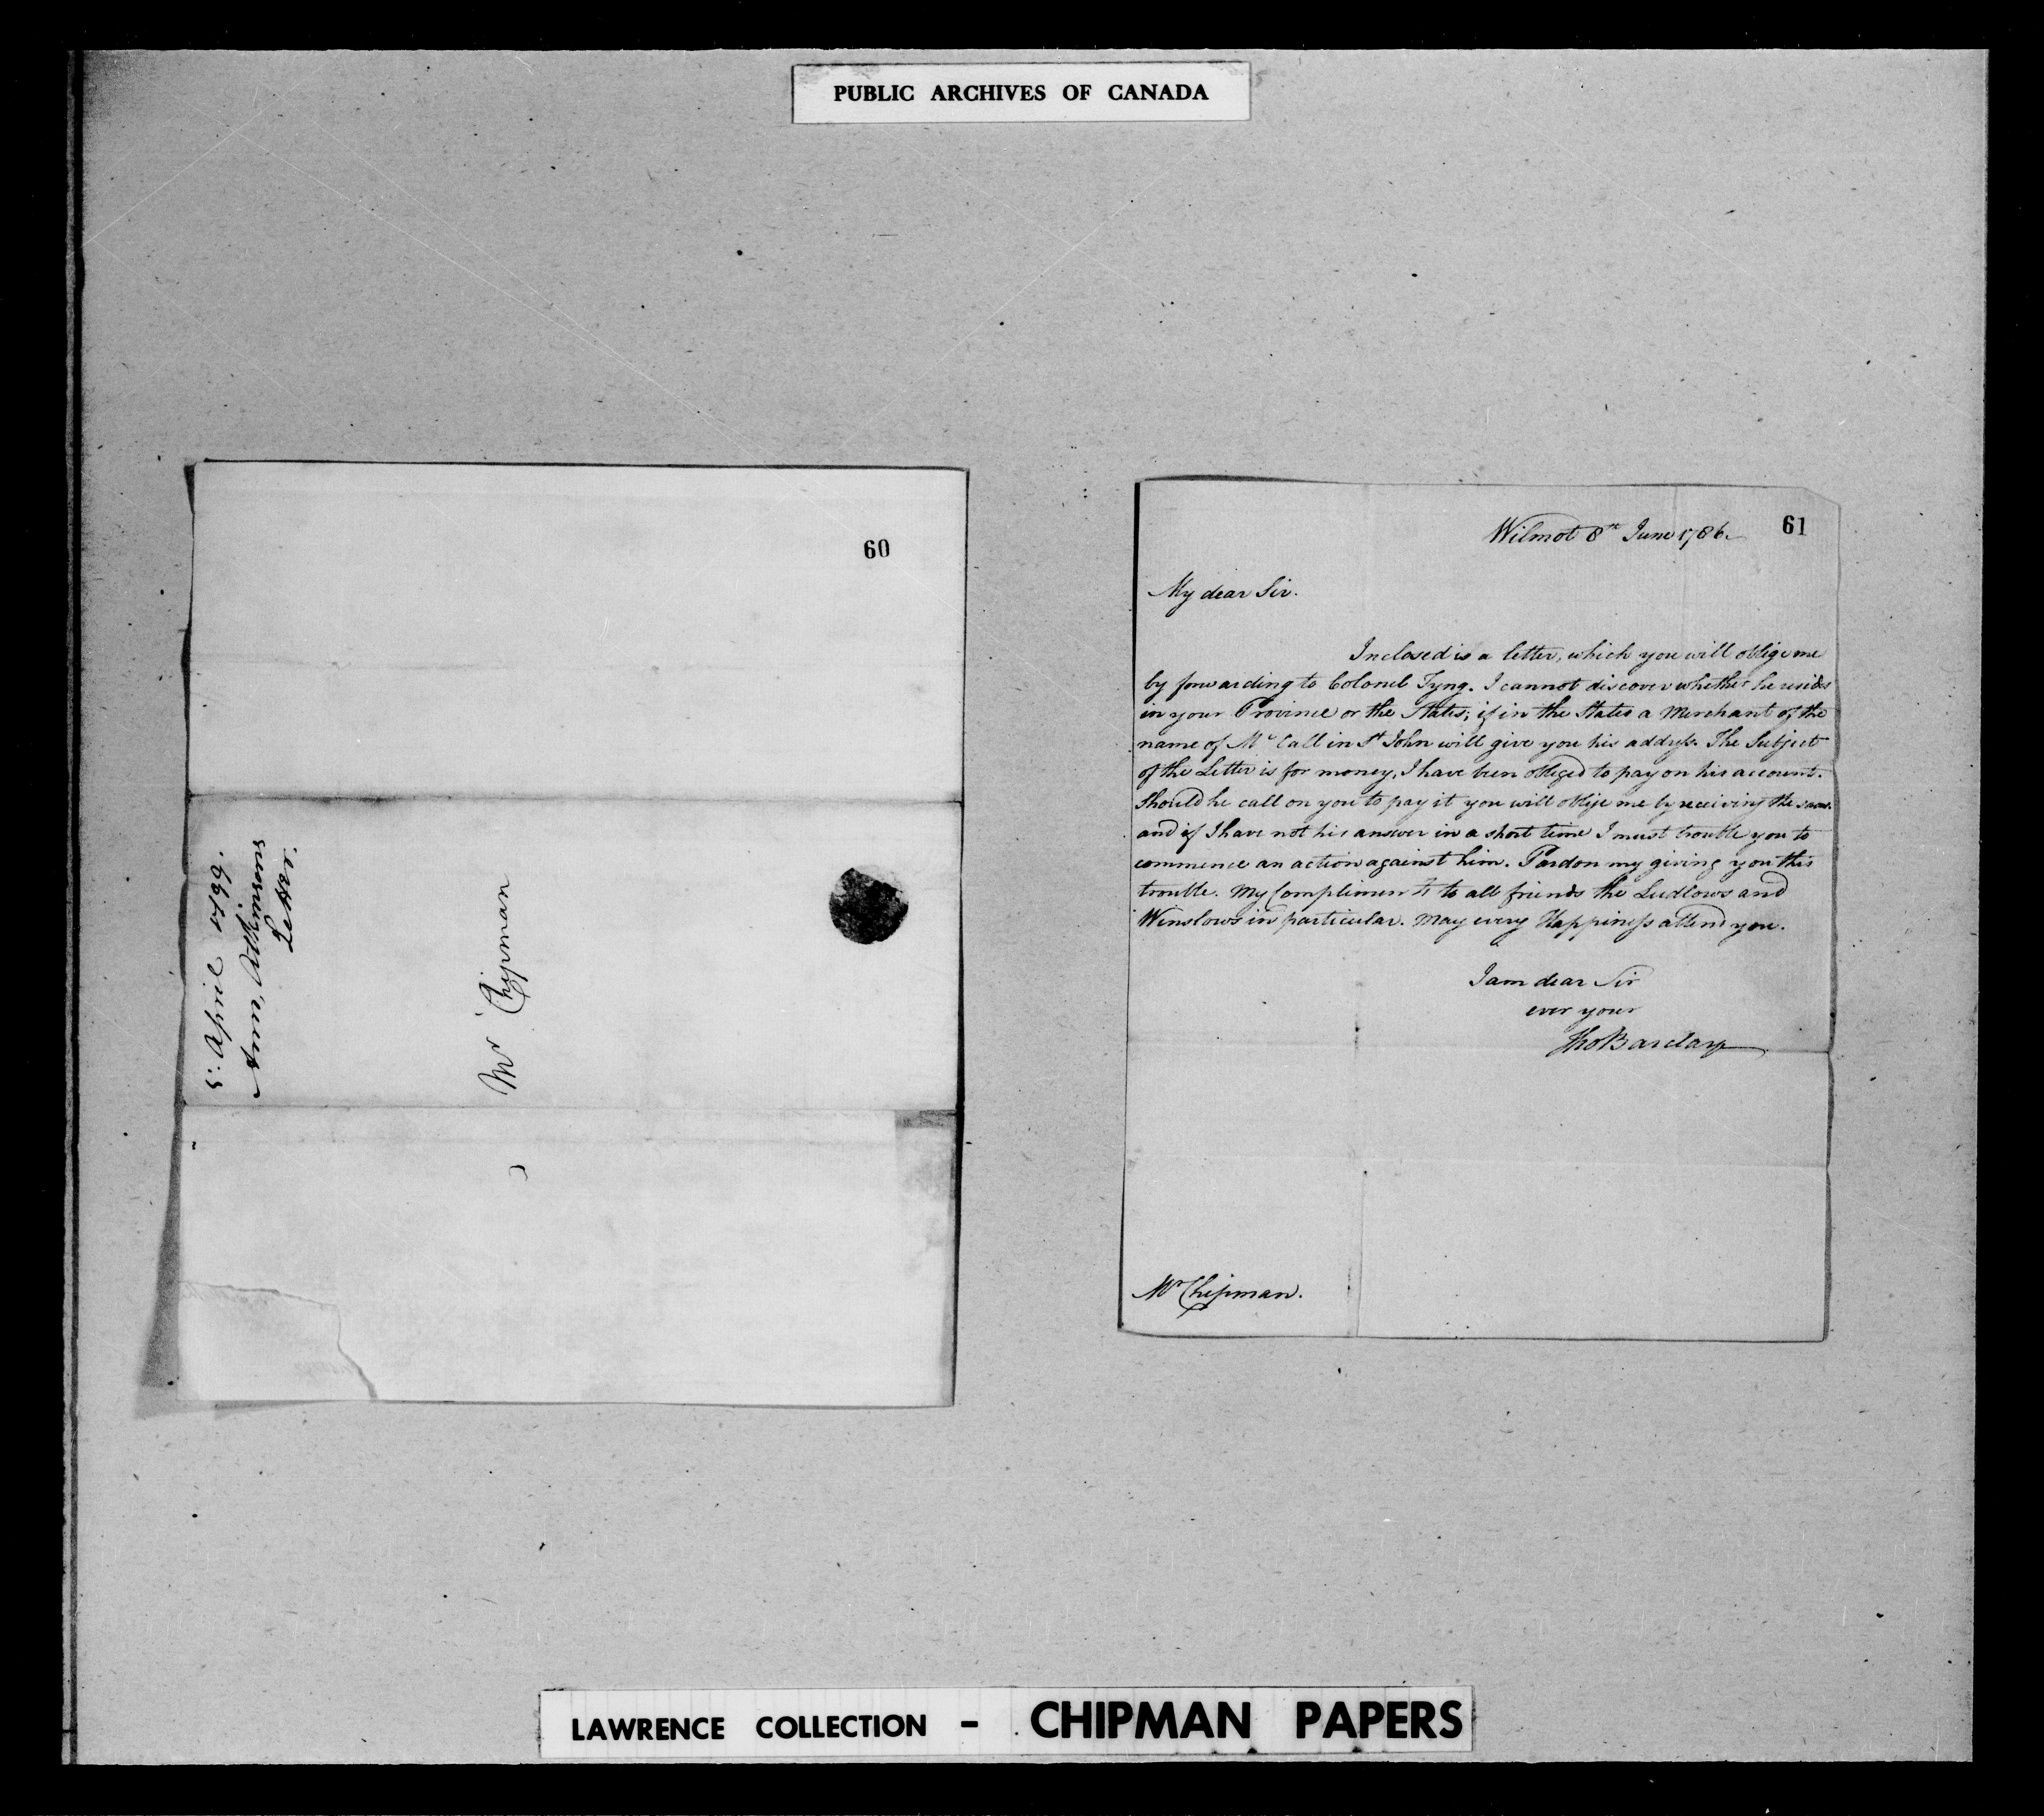 PUBLIC ARCHIVES OF CANADA
60
5. April 1799.
Ann, Atkinsons
Letter.
Mr Chipman
61
Wilmot 8th June 1786.
My dear Sir.
Inclosed is a letter, which you will oblige me
by forwarding to Colonel Tyng. I cannot discover whether he resides
in your Province or the States; if in the States a Merchant of the
name of Mc Call in St John will give you his addyss. The Subject
of the Letter is for money, I have been obliged to pay on his account.
Should he call on you to pay it you will oblige me by receiving the same.
and if I have not his answer in a short time I must trouble you to
commence an action against him. Pardon my giving you this
trouble. My Compliments to all friends the Ludlows and
Winslows in particular. May every Happiness attend you.
I am dear Sir
ever your
Tho Barclay
Mr Chipman.
LAWRENCE COLLECTION - CHIPMAN PAPERS